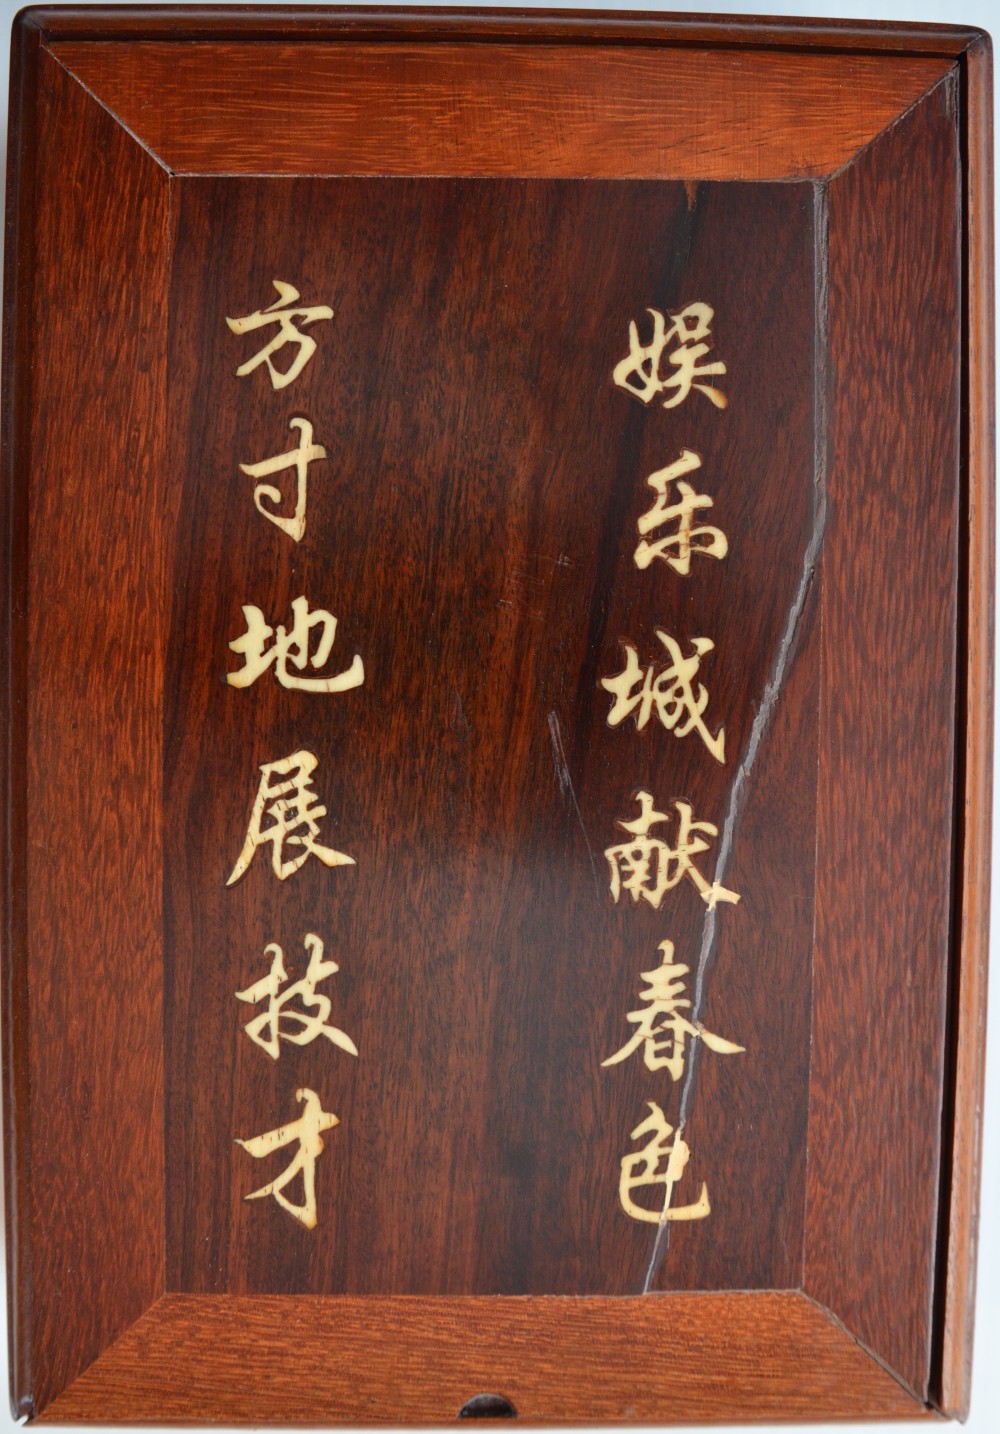 娱乐城献春色
方寸地展技才